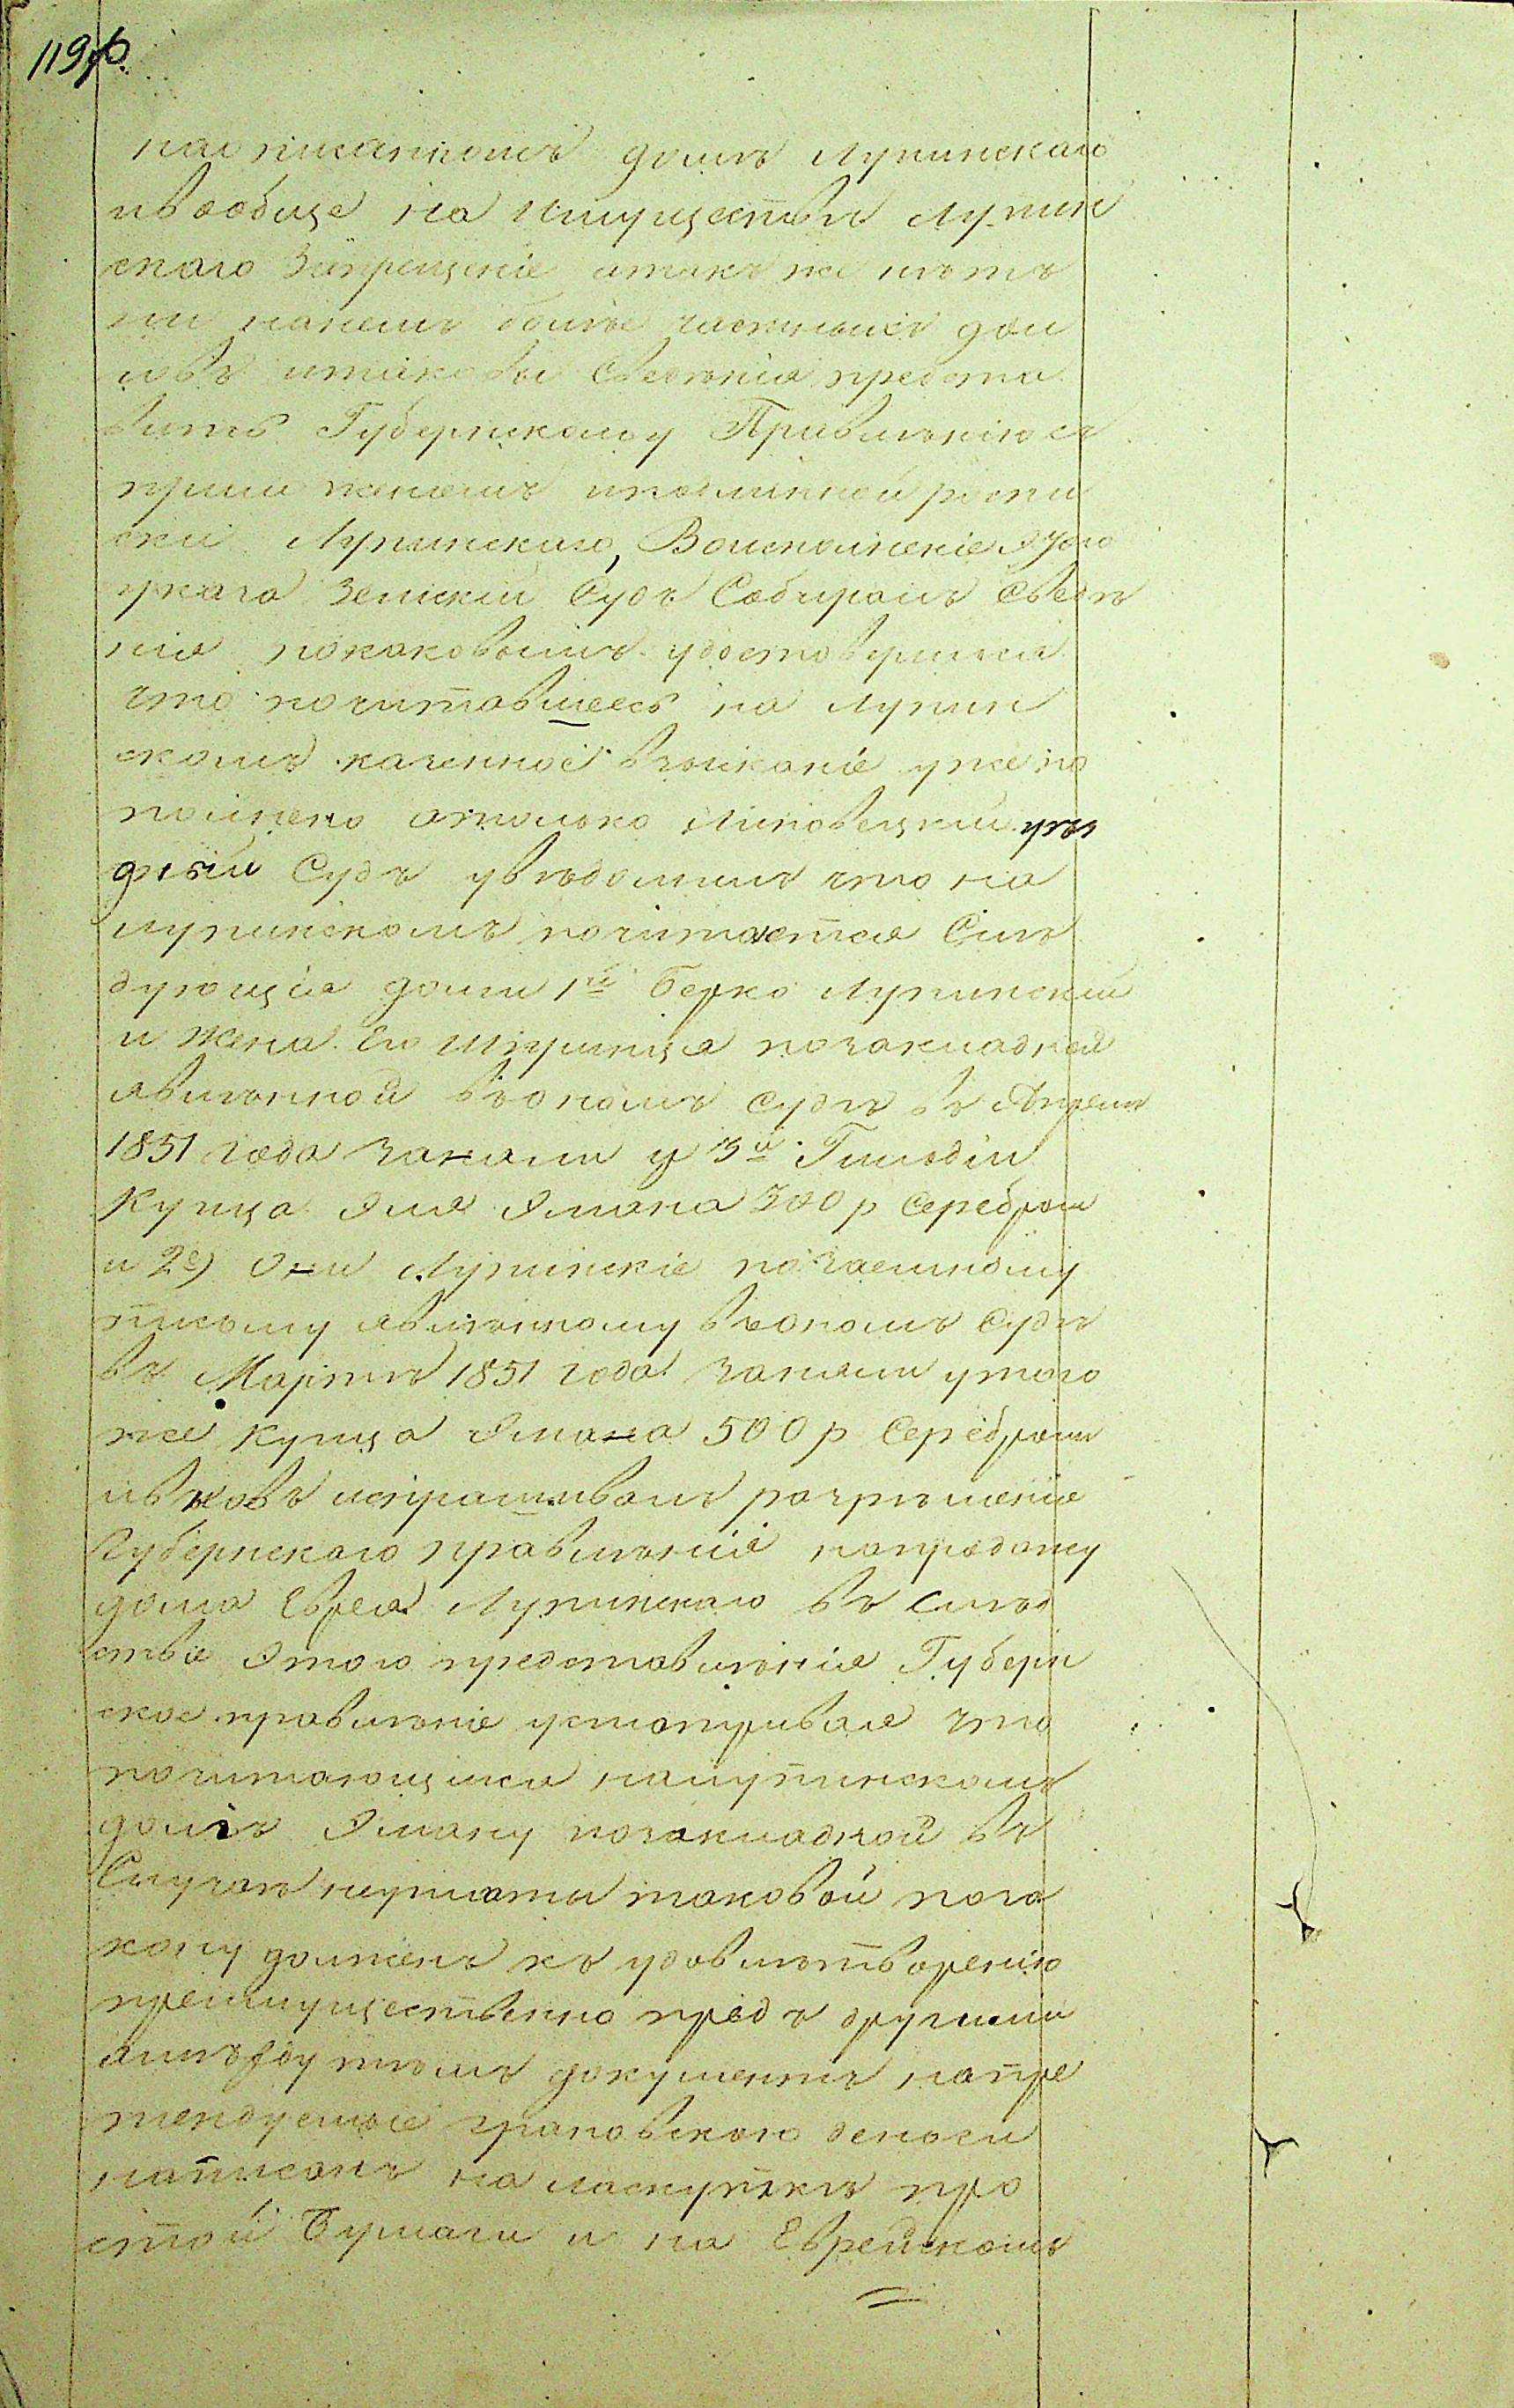 119об.
на описанномъ домѣ Лупинскаго
ивообще на Имуществѣ Лупин
скаго Запрещеніе итакъ же нѣтъ
ли накемъ болѣе частныхъ дол
говъ итаковыя Сведѣнія предста
вить Губернскому Правленію съ
приложеніемъ иподлинной роспи
ски Лупинскаго, Воисполненіе этого
Земскій Судъ Собиралъ Сведѣ
нія покаковымъ удостоверился
что почитавшееся на Лупин
скомъ казенное взысканіе уже по
полнено атолько Липовецкій уѣз
дный Судъ увѣдомилъ что на
лупинскомъ почитается Слѣ
дующія долги 1й Берко Лупинскій
и жена Его позакладной
явленной вѣономъ судѣ въ Апрѣлѣ
1851 года заняли у 3й Гильдіи
Купца Эля Эмана 300 р Серебром
и 2е) Они Лупинскіе позаемному
письму явленному вѣономъ Судѣ
въ Мартѣ 1851 года заняли утого
же Купца Эмана 500 р Серебромъ
ивновь испрашивалъ разрѣшенія
Губернскаго правленія напродажу
дома Еврея Лупинскаго въ Слѣд
ствіе Этого представленія Губерн
ское правленіе усматривая что
почитающійся налупинскомъ
долгъ Эману позакладной въ
Случаѣ неуплаты таковой поза
кону долженъ къ удовлетворенію
преимущественно предъ другими
документъ напре
тендуемые деньги
написанъ на ласкуткѣ про
стой Бумаги и на Еврейскомъ